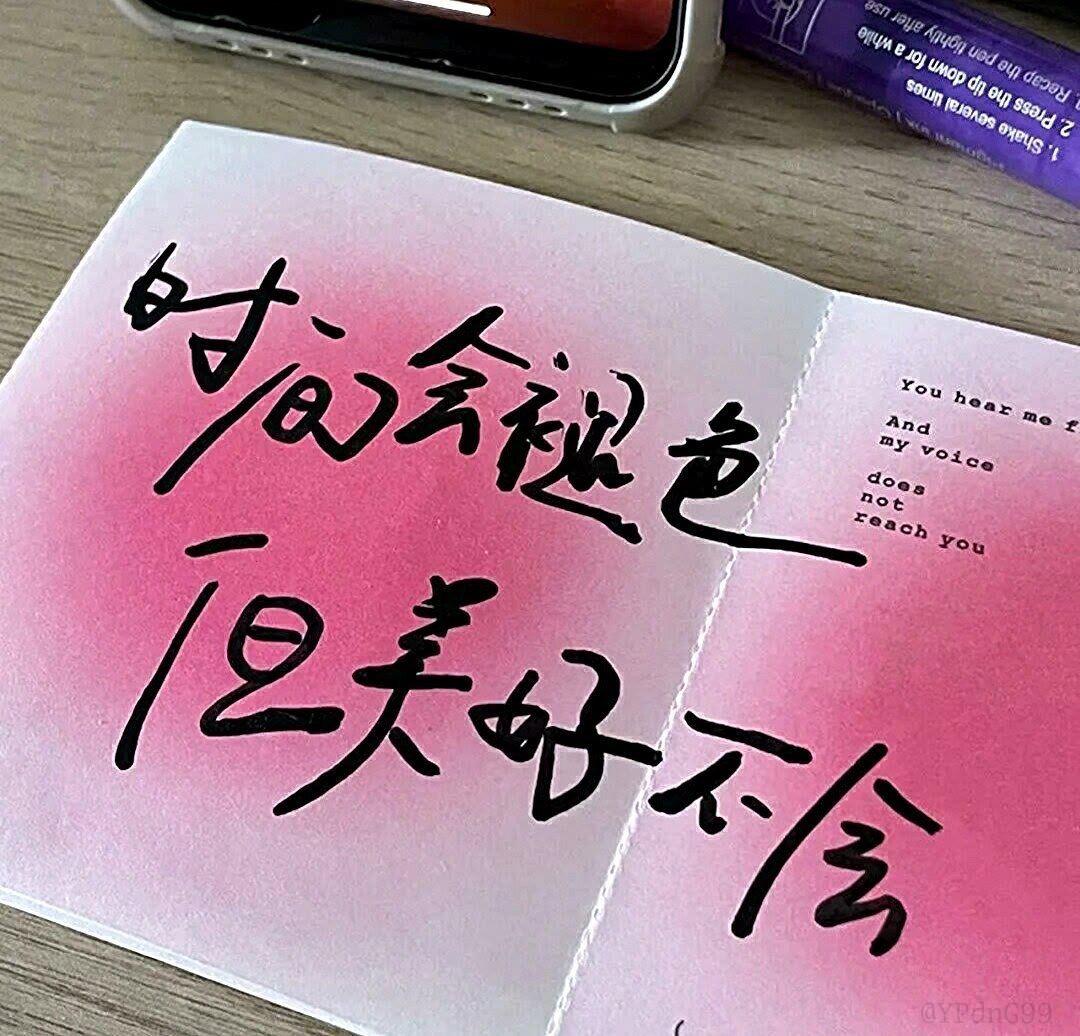 时间会褪色
但美好不会
You hear me f
And
my voice
does
not
reach you
1. Shake several times
2. Press the tip down for a while
3. Recap the pen tightly after use
@YPdnG99